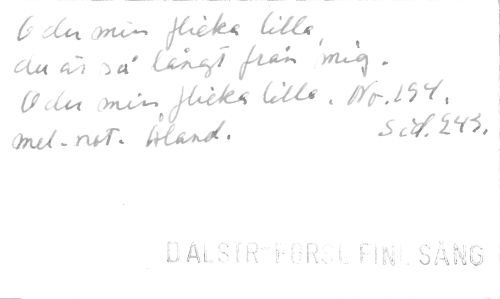 O du min flicka lilla,
du är så långt från mig.
O du min flicka lilla. No. 194.
mel. not. Åland. Sid. 243.
DALSTR-FORSL FINL SÅNG